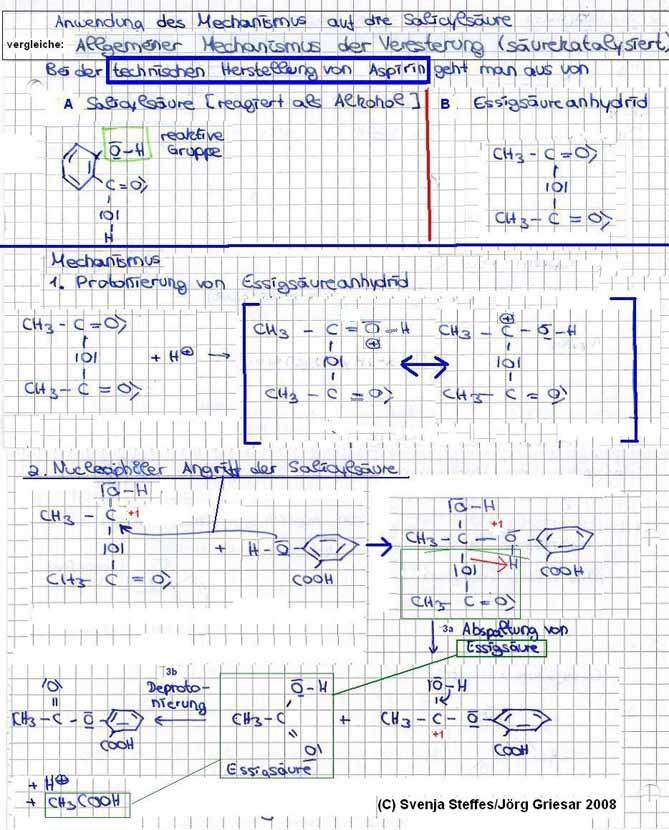 Anwendung des Mechanismus auf die Salicylsäure
vergleiche: Allgemeiner Mechanismus der Veresterung (säurekatalysiert)
Bei der technischen Herstellung von Aspirin geht man aus von
A Salicylsäure [reagiert als Alkohol]
B Essigsäureanhydrid
O-H reaktive Gruppe
C=O
IOI
H
CH3-C=O
IOI
CH3-C=O
Mechanismus
1. Protonierung von Essigsäureanhydrid
CH3-C=O
IOI
CH3-C=O
+ H⊕ →
CH3-C=O-H
⊕
IOI
CH3-C=O
↔
⊕
CH3-C-O-H
IOI
CH3-C=O
2. Nucleophiler Angriff der Salicylsäure
IO-H
CH3-C +1
IOI
CH3-C=O
+ H-O
COOH
→
IO-H
+1
CH3-C-O
H
COOH
IOI
CH3-C=O
3a Abspaltung von
Essigsäure
IOI
CH3-C-O
COOH
3b
Deproto-
nierung
O-H
CH3-C
OI
Essigsäure
+
IO-H
CH3-C-O
+1
COOH
+ H⊕
+ CH3COOH
(C) Svenja Steffes/Jörg Griesar 2008